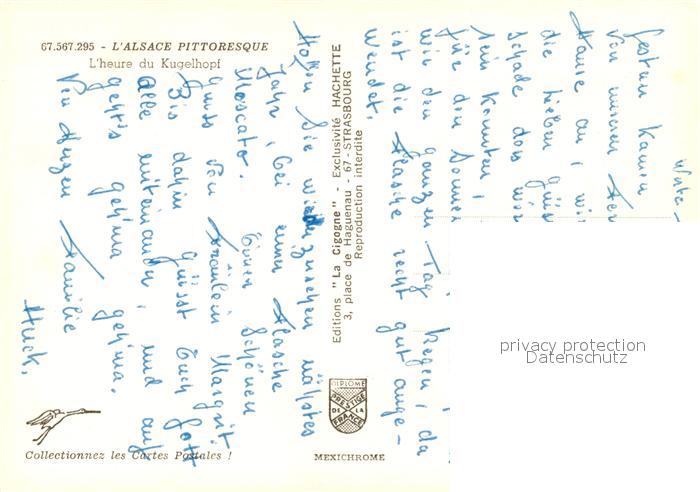 67.567.295 - L'ALSACE PITTORESQUE
L'heure du Kugelhopf
Gestern kamen
von unseren
Hause an, wir
die lieben
schade das wir
sein konnten,
für den Sommer
wir den ganzen Tag Regen, da
ist die Flasche recht gut ange-
wendet.
Hoffen Sie wiederzusehen nächstes
Jahr, bei einer Flasche
Moscato. Einen Schönen
Gruss von Fräulein Margrit
Bis dahin Grüsst Euch Gott
alle miteinander, und auf
geht's geh'ma geh'ma.
Von Herzen Familie
Huck.
Editions "La Cigogne" - Exclusivité HACHETTE
3, place de Haguenau - 67 - STRASBOURG
Reproduction interdite
DIPLOME
PRESTIGE
DE LA
FRANCE
Collectionnez les Cartes Postales !
MEXICHROME
privacy protection
Datenschutz